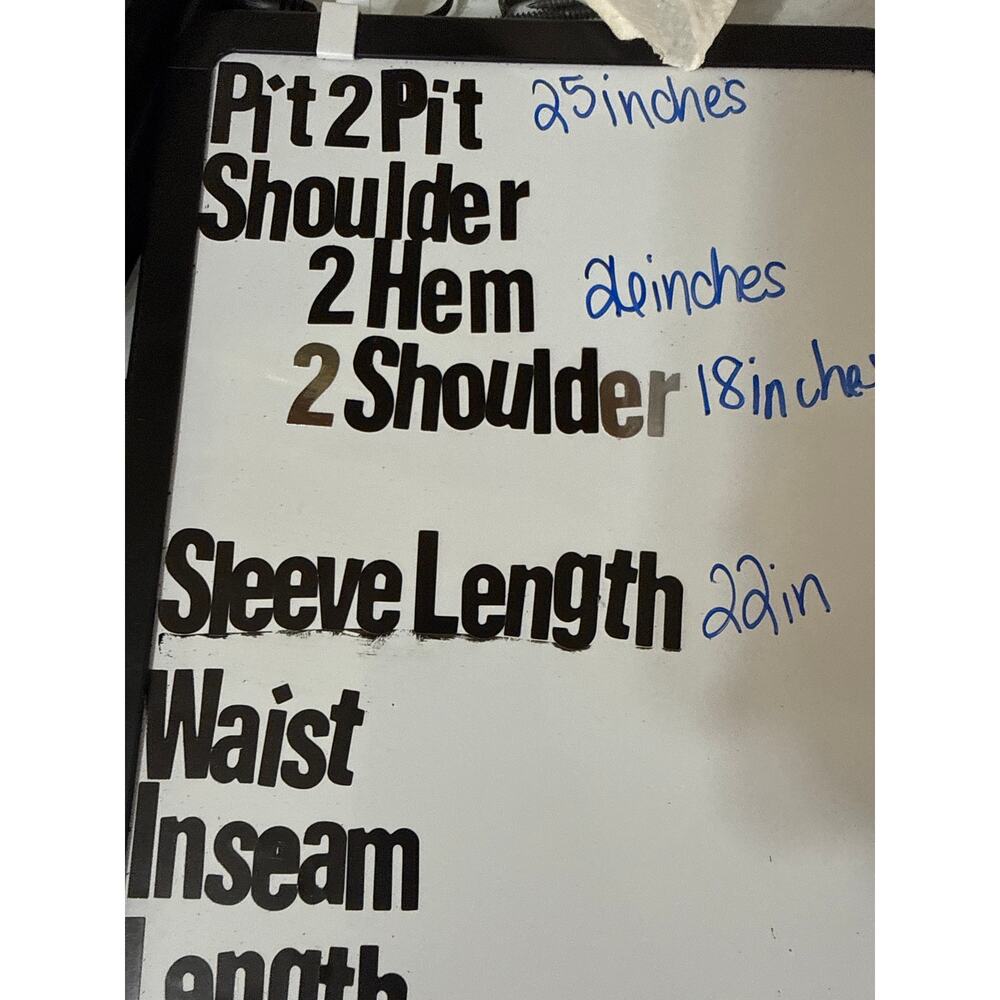 Pit2Pit 25inches
Shoulder
2 Hem 26inches
2 Shoulder 18inches
Sleeve Length 22in
Waist
Inseam
Length